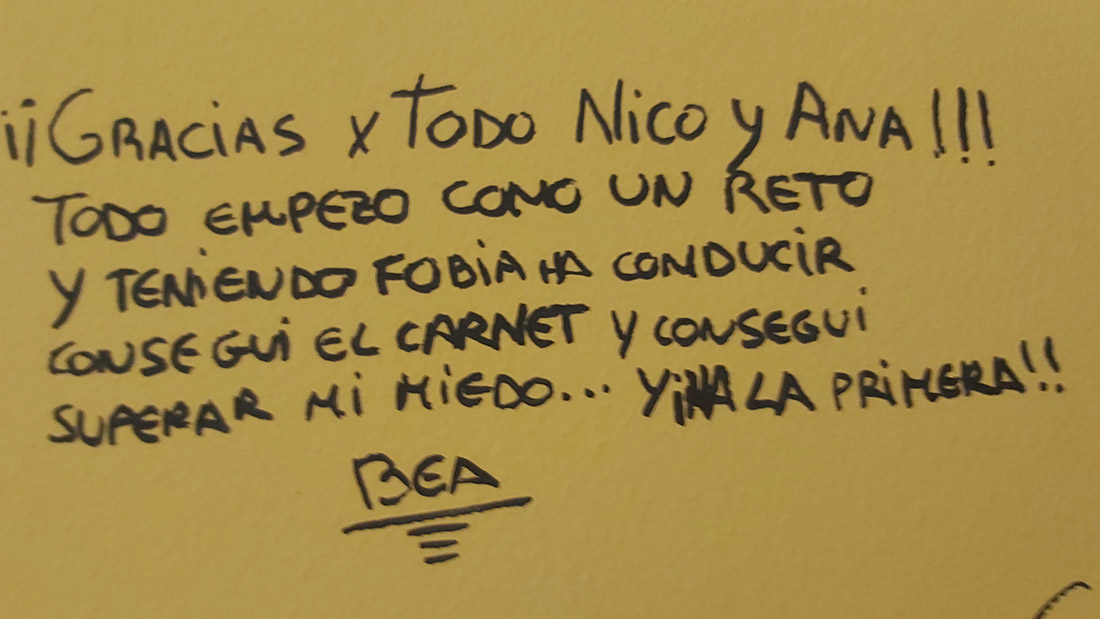 ¡¡GRACIAS x TODO NICO y ANA!!!
TODO EMPEZO COMO UN RETO
Y TENIENDO FOBIA HA CONDUCIR
CONSEGUI EL CARNET Y CONSEGUI
SUPERAR MI MIEDO... Y ¡¡A LA PRIMERA!!
BEA